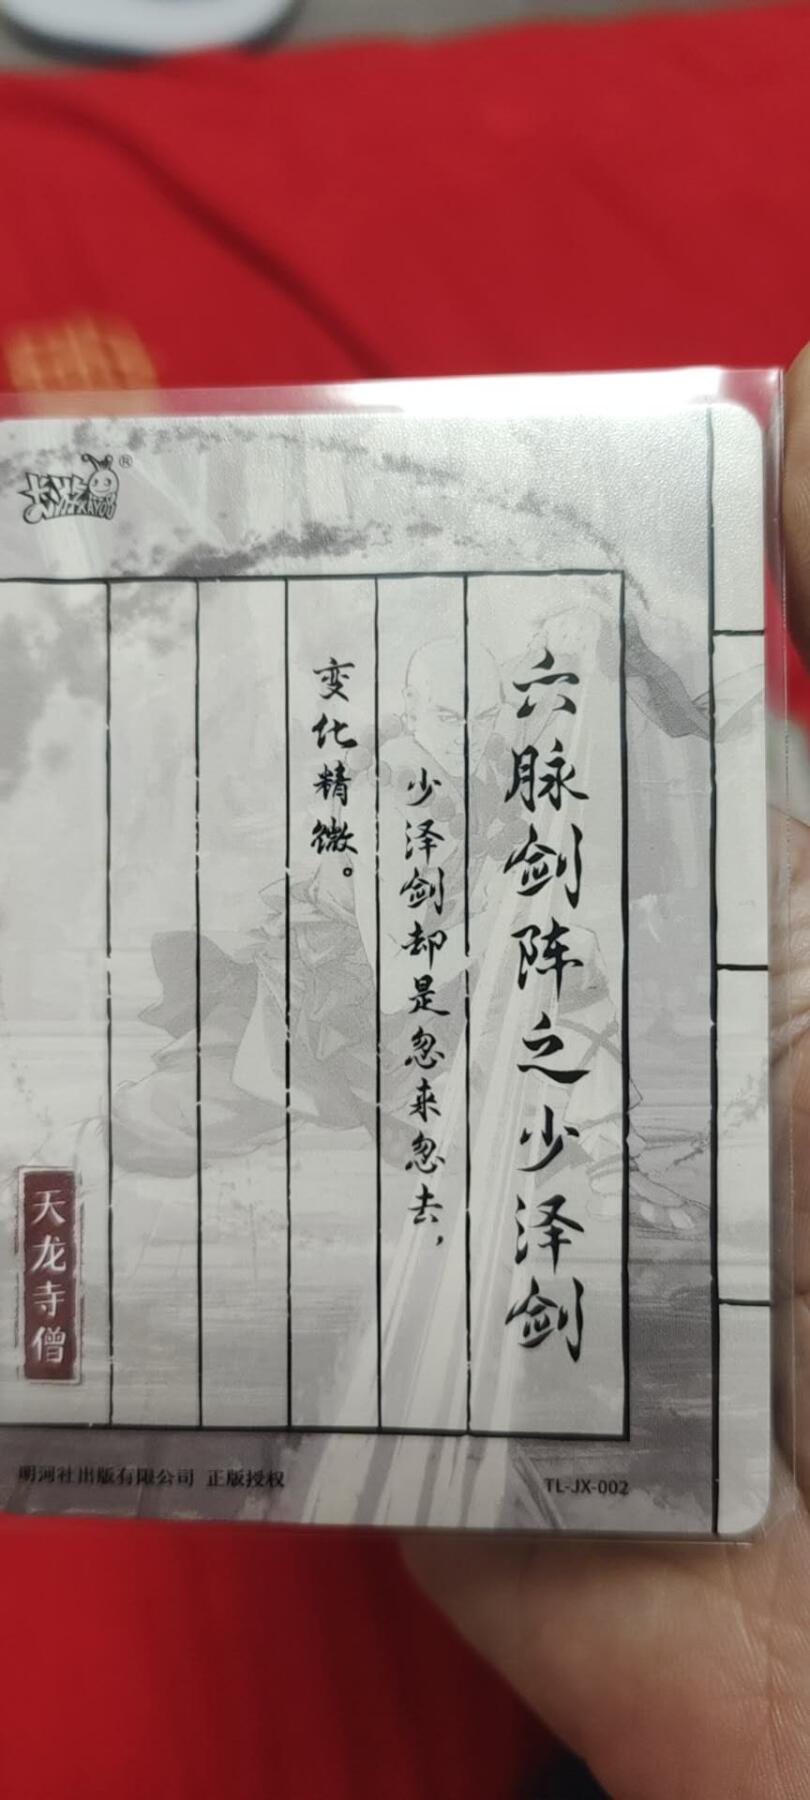 卡游
KAYOU
®
六脉剑阵之少泽剑
少泽剑却是忽来忽去，
变化精微。
天龙寺僧
明河社出版有限公司 正版授权
TL-JX-002